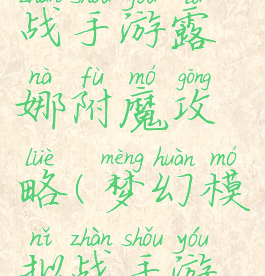 zhàn shǒu yóu lù
战手游露
nà fù mó gōng
娜附魔攻
lüè mèng huàn mó
略(梦幻模
nǐ zhàn shǒu yóu
拟战手游